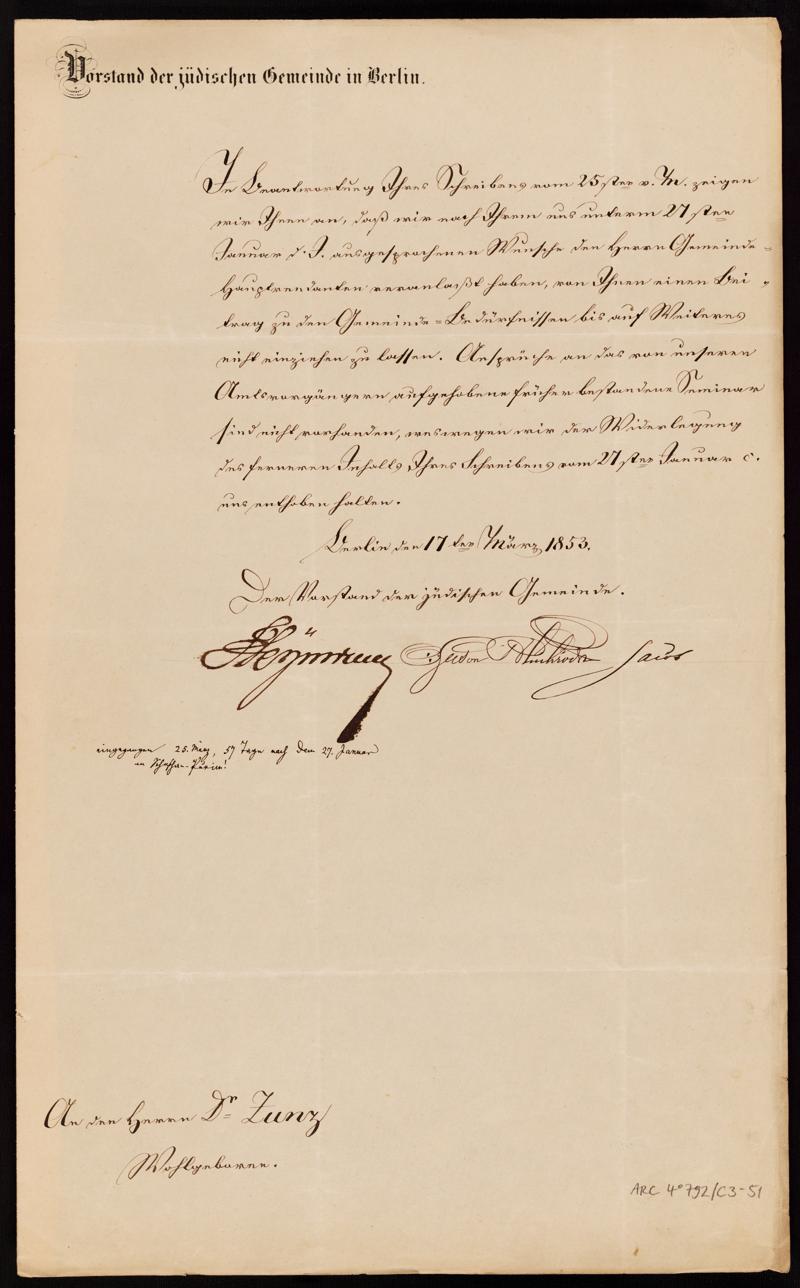 Vorstand der jüdischen Gemeinde in Berlin.
In Beantwortung Ihres Schreibens vom 25sten v. M. zeigen
wir Ihnen an, daß wir nach Ihrem uns unterm 27sten
Januar d. J. ausgesprochenen Wunsche den Herrn Gemeinde-
Hauptrendanten veranlaßt haben, von Ihnen einen Bei-
trag zu den Gemeinde-Bedürfnissen bis auf Weiteres
nicht einziehen zu lassen. Ansprüche an das von unseren
Amtsvorgängern aufgehobene früher bestandene Seminar
sind nicht vorhanden, weswegen wir der Widerlegung
des ferneren Inhalts Ihres Schreibens vom 27sten Januar c.
uns enthoben halten.
Berlin den 17ten März 1853.
Der Vorstand der jüdischen Gemeinde.
Heymann
eingegangen 25. März, 57 Tage nach dem 27. Januar
an Schuschan-Purim!
An den Herrn Dr Zunz
Wohlgeboren.
ARC 4° 792/C3-51